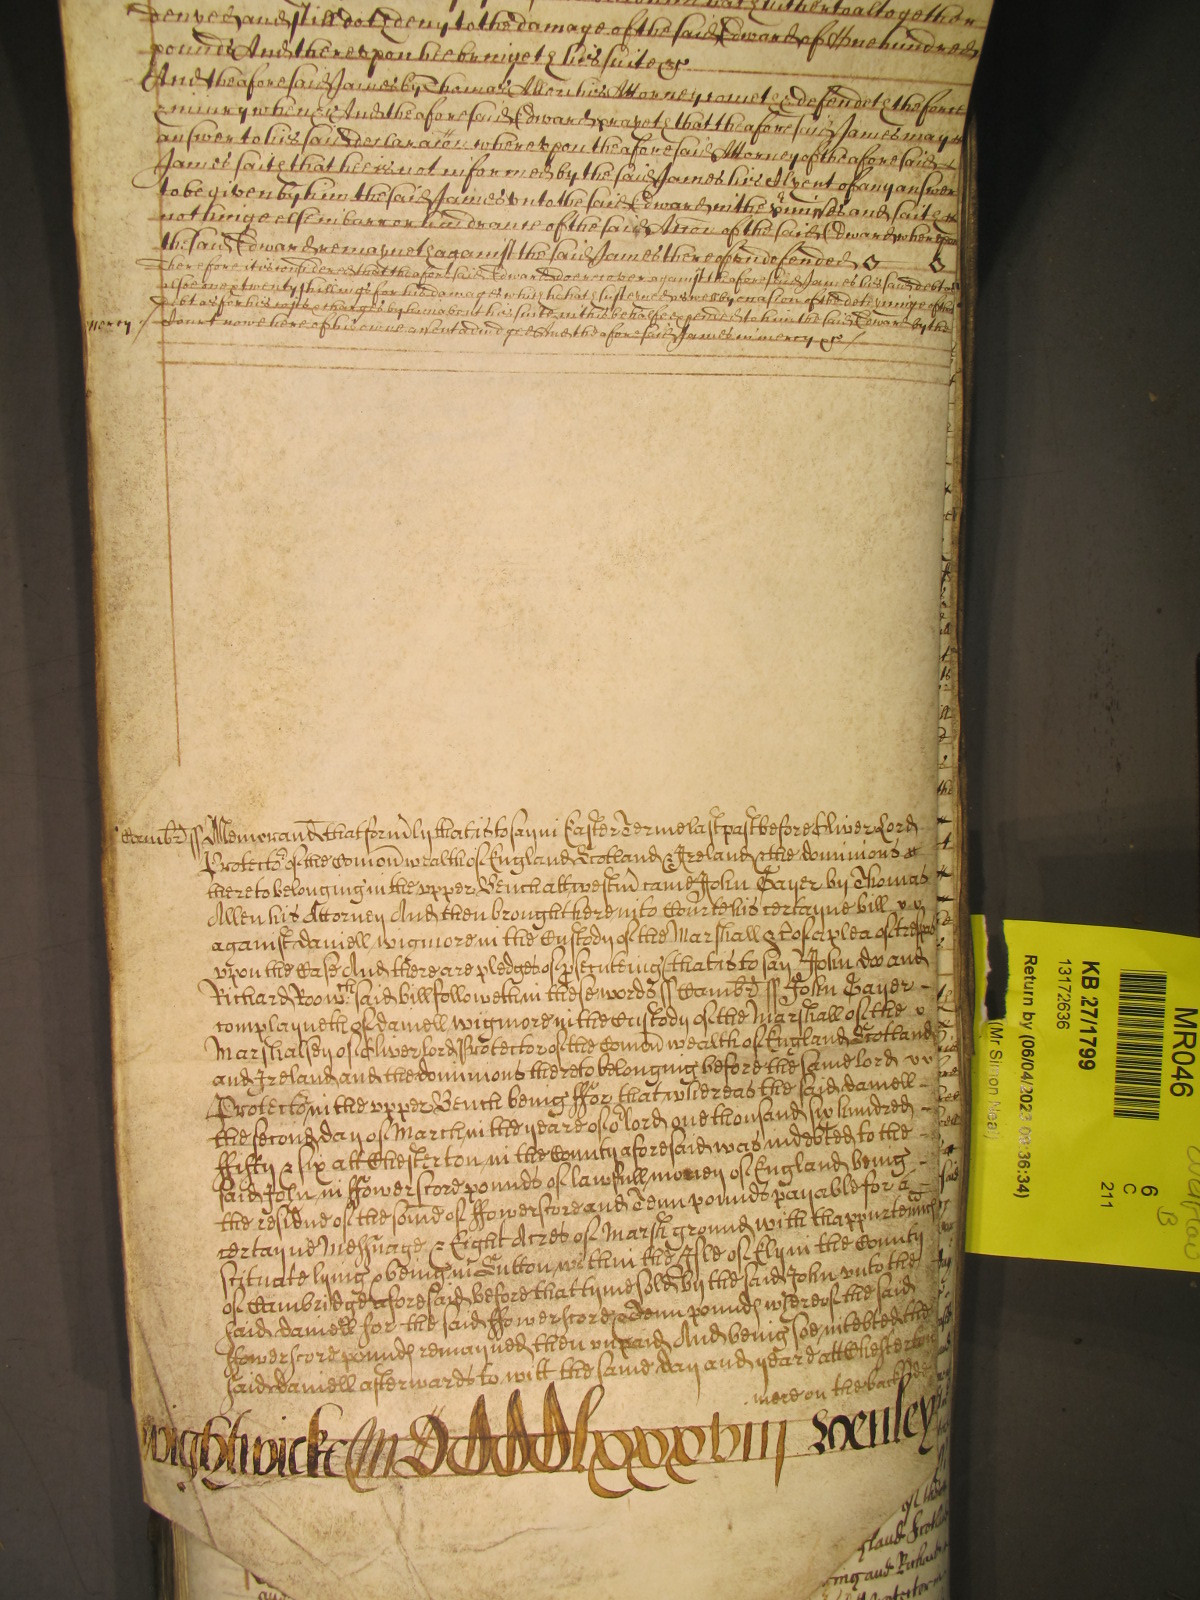 denyed and still doth deny to the damage of the said Edward of One hundred
pounds And thereupon hee bringeth his suite &c
And the aforesaid James by Thomas Allen his Attorney cometh & defendeth the force
& iniury when &c And the aforesaid Edward prayeth that the aforesaid James may
answer to his said declaracon whereupon the aforesaid Attorney of the aforesaid
James saith that hee is not informed by the said James his Clyent of any answer
to be given by him the said James unto the said Edward in the premisses and saith
nothinge else in barr or hindrance of the said Accon of the said Edward whereupon
the said Edward remayneth against the said James thereof undefended
Therefore it is considered that the aforesaid Edward doe recover against the aforesaid James his said debt
alsoe twenty shillings for his damages which hee hath susteyned aswell by occasion of the deteyninge of that
debt as for his costs & charges by him about his suite in this behalfe expended to him the said Edward by the
Court nowe here of his owne assent adiudged And the aforesaid James in mercy &c
mercy
Cambr ss Memorand that formly that is to say in Easter Terme last past before Oliver Lord
Protector of the Comonwealth of England Scotland & Ireland & the dominions
thereto belonging in the upper Bench att Westm came John Gayer by Thomas
Allen his Attorney And then brought here into Court his certayne bill
against daniell wigmore in the Custody of the Marshall &c of a plea of trespas
upon the Case And there are pledges of prsecuteing that is to say John doo and
Richard Roo wch said bill followeth in these words ss Cambr ss John Gayer
complayneth of daniell wigmore in the Custody of the Marshall of the
Marshalsey of Oliver lord Protector of the Comonwealth of England Scotland
and Ireland and the dominions thereto belonging before the same lord
Protector in the upper Bench being ffor that whereas the said daniell
the second day of March in the yeare of or lord one thousand six hundred
ffifty & six att Chesterton in the County aforesaid was indebted to the
said John in ffowerscore pounds of lawfull money of England being
the residue of the some of ffowerscore and Tenn pounds payable for a
certayne Messuage & Eight Acres of Marsh ground with thappurtennces
scituate lying & being in Sutton within the Isle of Ely in the County
of Cambridge aforesaid before that tyme sold by the said John unto the
said daniell for the said ffowerscore & Tenn pounds whereof the said
ffowerscore pounds remayned then unpaid And being soe indebted the
said daniell afterwards to witt the same day and yeare att Chesterton
more on the back
Wightwicke M D CCC lxxxxviii Wenley
MR046
6
C
211
KB 27/1799
13172636
Return by (06/04/2023 09:36:34)
(Mr Simon Neal)